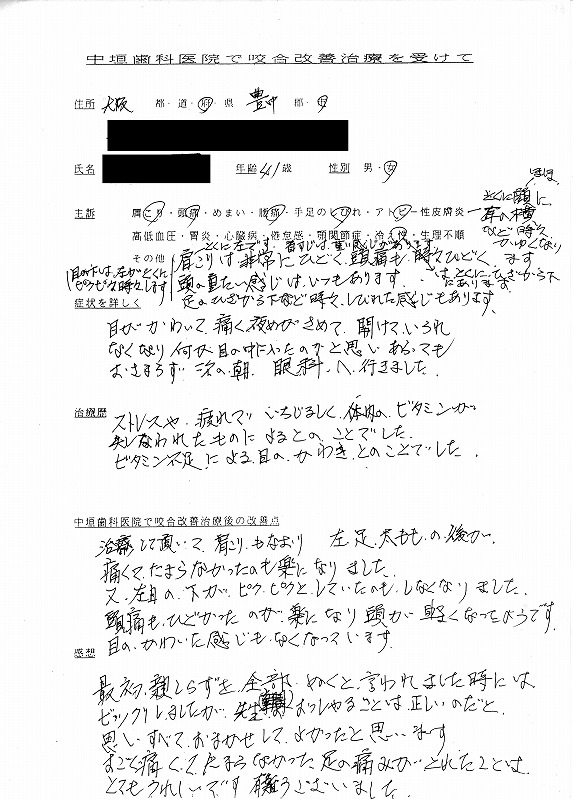 中垣歯科医院で咬合改善治療を受けて
住所 大阪 都・道・府・県 豊中 郡・市
氏名 年齢 41歳 性別 男・女
主訴 肩こり・頭痛・めまい・腰痛・手足のしびれ・アトピー性皮膚炎
高低血圧・胃炎・心臓病・倦怠感・顎関節症・冷え性・生理不順
ほほ
とくに頭に
耳の横
など時々
かゆくなり
ます
その他
とくに左です。首すじは重い感じがあります。
肩こりは非常にひどく、頭痛も時々ひどく
頭の重たい感じはいつもあります。
足のひざから下など時々しびれた感じもあります。
とくにひざから下
にあります
目の下は、左がとくに
ピクピク時々します
症状を詳しく
目がかわいて、痛く夜めがさめて、開けていられ
なくなり何か目の中に入ったのかと思いあらっても
おさまらず 次の朝、眼科へ行きました。
治療歴
ストレスや、疲れで いちじるしく、体内の、ビタミンが
失なわれたものによるとの、ことでした。
ビタミン不足による、目の、かわき、とのことでした。
中垣歯科医院で咬合改善治療後の改善点
治療して頂いて、肩こりもなおり 左足、太ももの後が、
痛くてたまらなかったのも楽になりました。
又、左目の下が、ピク、ピクと、していたのもしなくなりました。
頭痛も、ひどかったのが、楽になり頭が軽くなったようです。
目の、かわいた感じも、なくなっています。
感想
最初、親しらずを、全部、ぬくと、言われました時には
ビックリしましたが、先生のおっしゃることは正しいのだと、
思い、すべて、おまかせして、よかったと思います
すごく痛くて、たまらなかった、足の痛みがとれたことは、
とてもうれしいです 有難うございました。